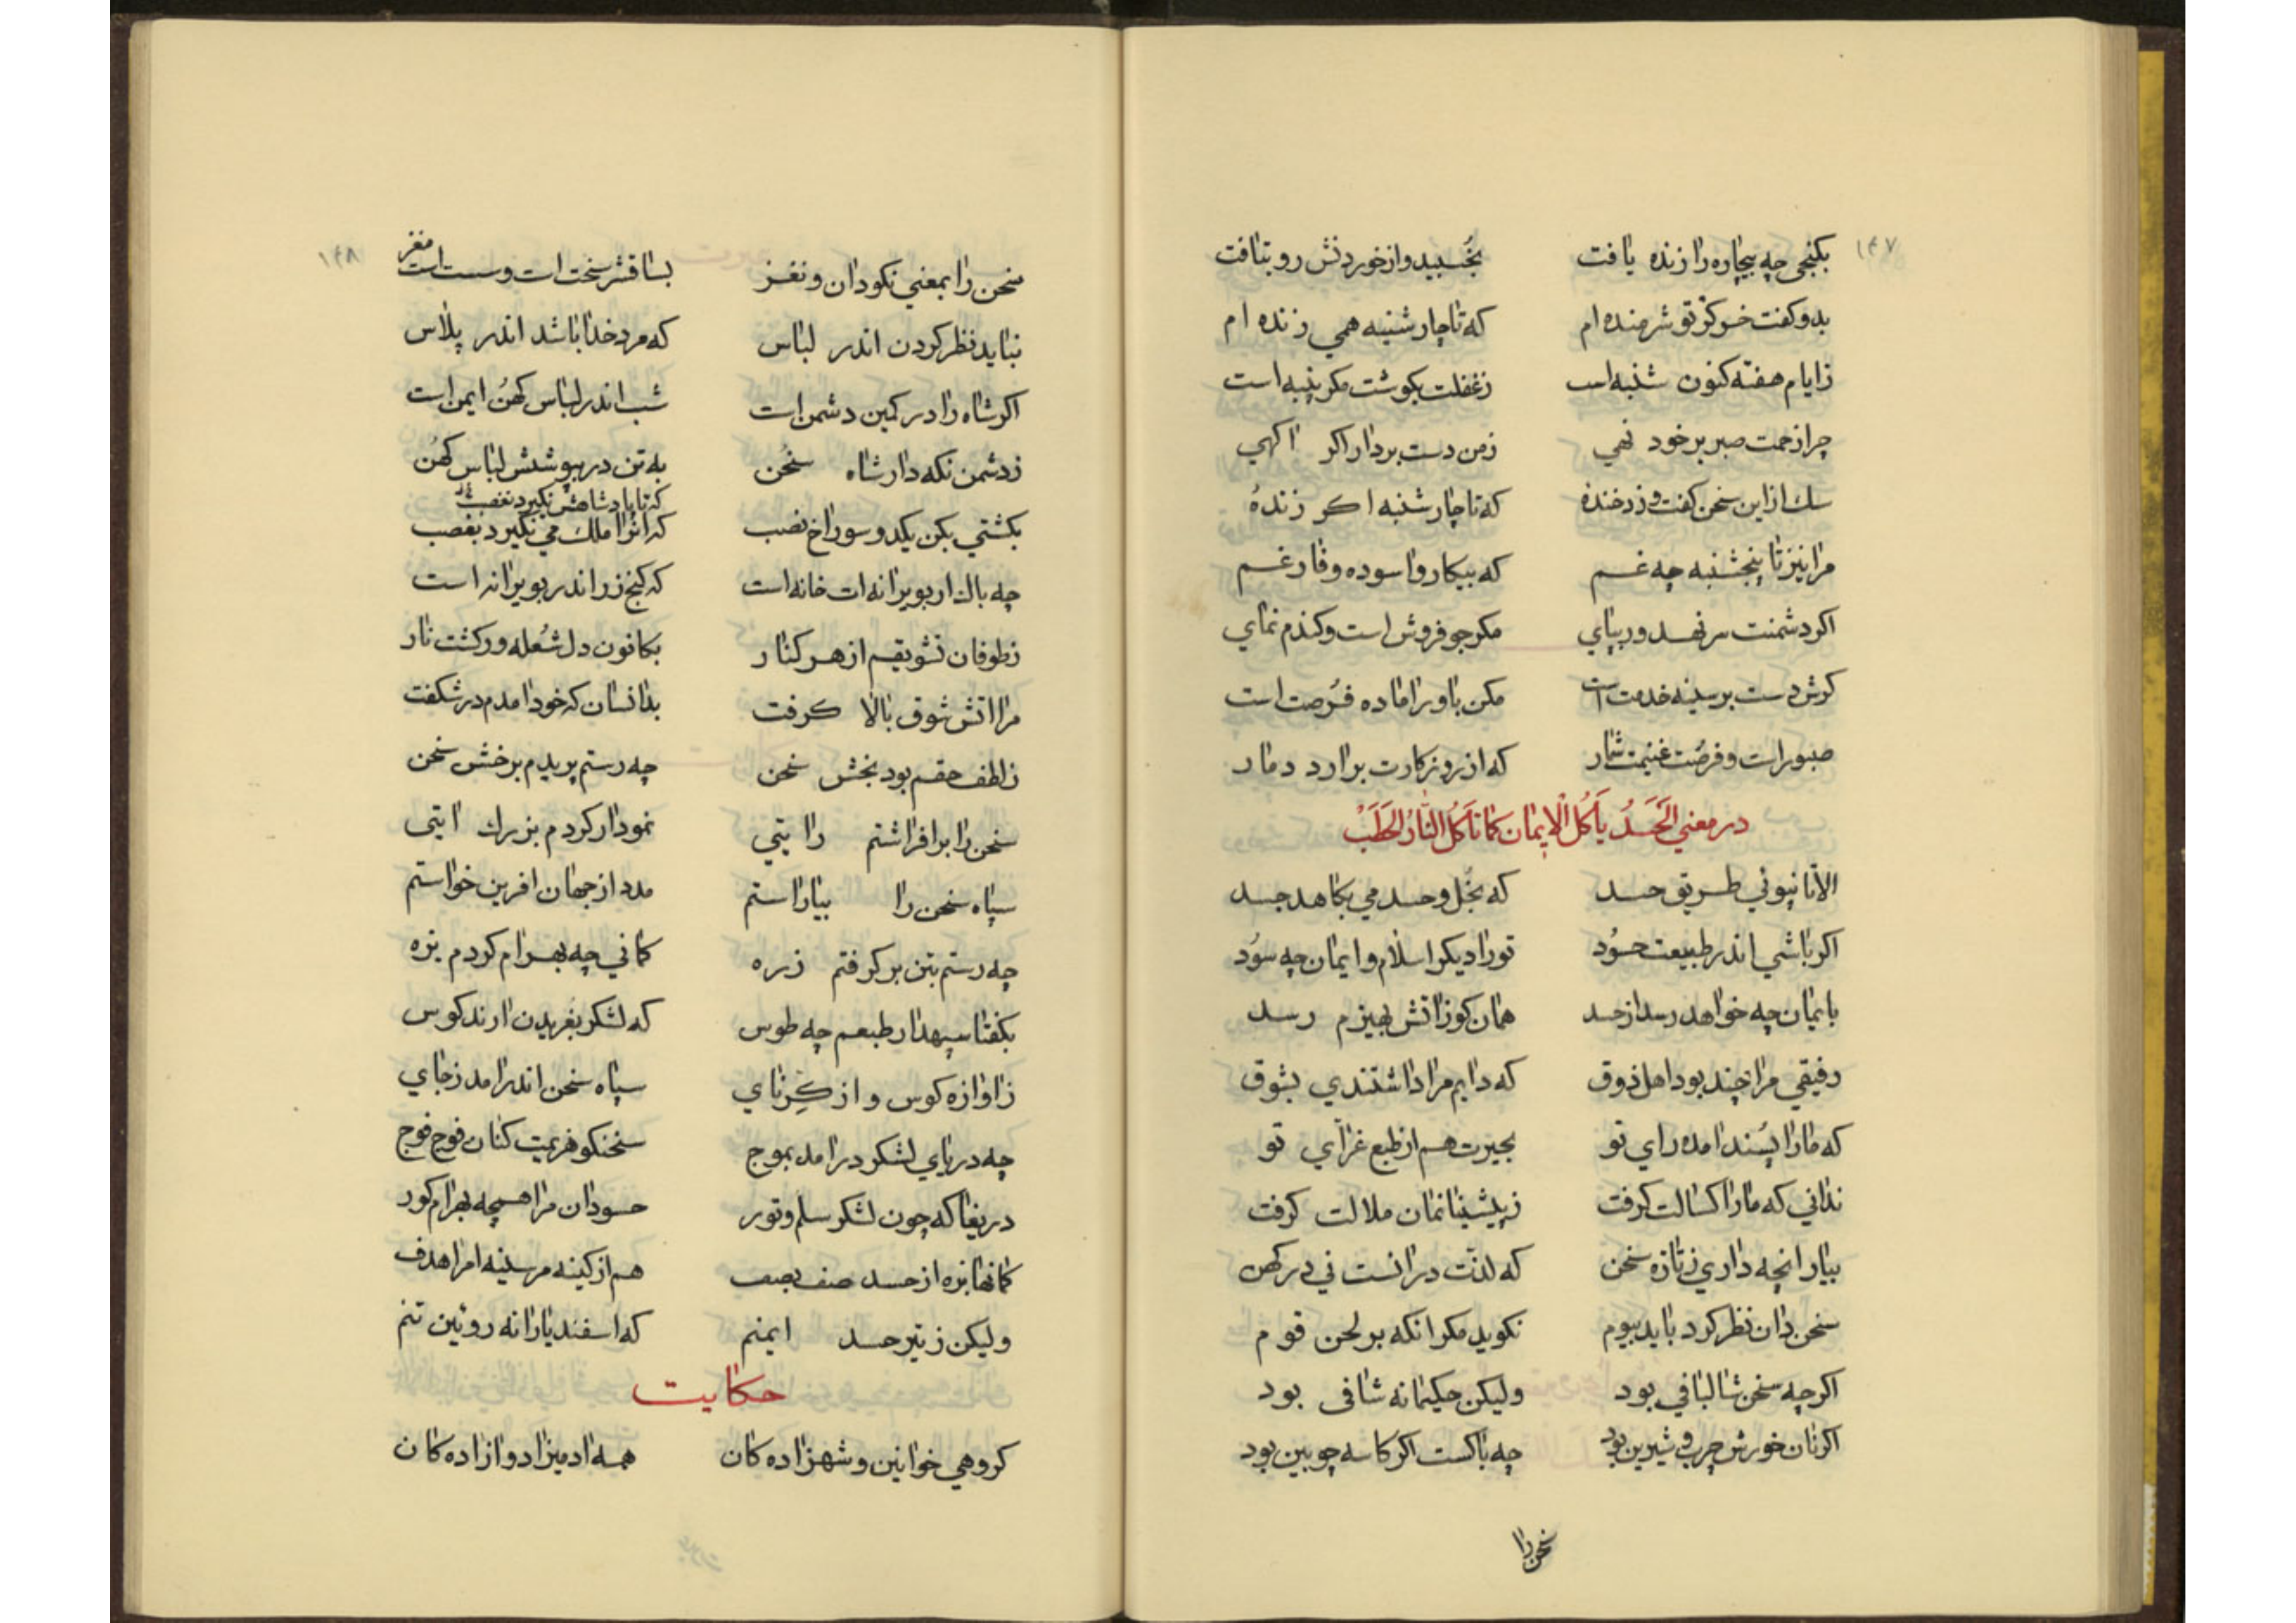 ۱۴۷
بکنجی چه بیچاره را زنده یافت بخسبید و از خوردنش رو بتافت
بدو کفت خسو کز تو شرمنده ام که تا چار شنبه همی زنده ام
ز ایام هفته کنون شنبه است ز غفلت بکوشت مکر پنبه است
چرا زحمت صبر بر خود نهی ز من دست بردار اکر اکهی
سك از این سخن کفت و زد خنده که تا چار شنبه اکر زندهٔ
مرا نیز تا پنجشنبه چه غم که بیکار و اسوده و فارغم
اکر دشمنت سر نهد ور بپای مکر جو فروش است و کندم نمای
کرش دست بر سینه خدمت است مکن باور اماده فرصت است
صبور است و فرصت غنیمت شمار که از روزکارت برارد دمار
در معنی الحَسَدُ یَأکُلُ الْاِیمان کَما تَأکُلُ النّارُ الحَطَبْ
الا تا نپوئی طریق حسد که بخل و حسد می بکاهد جسد
اکر باشی اندر طبیعت حسود تو را دیکر اسلام و ایمان چه سود
بایمان چه خواهد رسد از حسد همان کو ز اتش بهیزم رسد
رفیقی مرا چند بود اهل ذوق که دایم مرا داشتندی بشوق
که ما را پسند امده رای تو بحیرت هم از طبع غرّای تو
ندانی که ما را کسالت کرفت ز پیشینیانمان ملالت کرفت
بیار انچه داری ز تازه سخن که لذت در انست نی در کهن
سخن دان نظر کرد باید بیوم نکوید مکر انکه بر لحن قوم
اکر چه سخن شالبافی بود ولیکن حکیمانه شافی بود
اکر نان خورش چرب و شیرین بود چه باکست اکر کاسه چوبین بود
سخن را
۱۴۸
سخن را بمعنی نکودان و نغز بسا قشر سخت ات و سست است مغز
نباید نظر کردن اندر لباس که مرد خدا باشد اندر پلاس
اکر شاه را در کمین دشمن است شب اندر لباس کهن ایمن است
ز دشمن نکه دار شاه سخن به تن در بپوشش لباس کهن
که تا پادشاهش نکیرد بغصب
بکشتی بکن یکدو سوراخ نصب که انرا ملك می نکیرد بغصب
چه باك ار بویرانه ات خانه است که کنج زر اندر بویرانه است
ز طوفان تشویقم از هر کنار بکانون دل شعله ور کشت نار
مرا اتش شوق بالا کرفت بدانسان که خود امدم در شکفت
ز لطف حقم بود بخش سخن چه رستم پریدم برخش سخن
سخن را برافراشتم رایتی نمودار کردم بزرك ایتی
سپاه سخن را بیاراستم مدد از جهان افرین خواستم
چه رستم بتن بر کرفتم زره کمانی چه بهرام کردم بزه
بکفتا سپهدار طبعم چه طوس که لشکر بغریدن ارند کوس
ز اوازه کوس و از کِرنای سپاه سخن اندر امد ز جای
چه دریای لشکر در امد بموج سخنکو هزیمت کنان فوج فوج
دریغا که چون لشکر سلم و تور حسودان مرا همچه بهرام کور
کمانها بزه از حسد صف بصف هم از کینه مر سینه ام را هدف
ولیکن ز تیر حسد ایمنم که اسفندیارانه روئین تنم
حکایت
کروهی خوانین و شهزاده کان همه ادمیزاد و ازاده کان